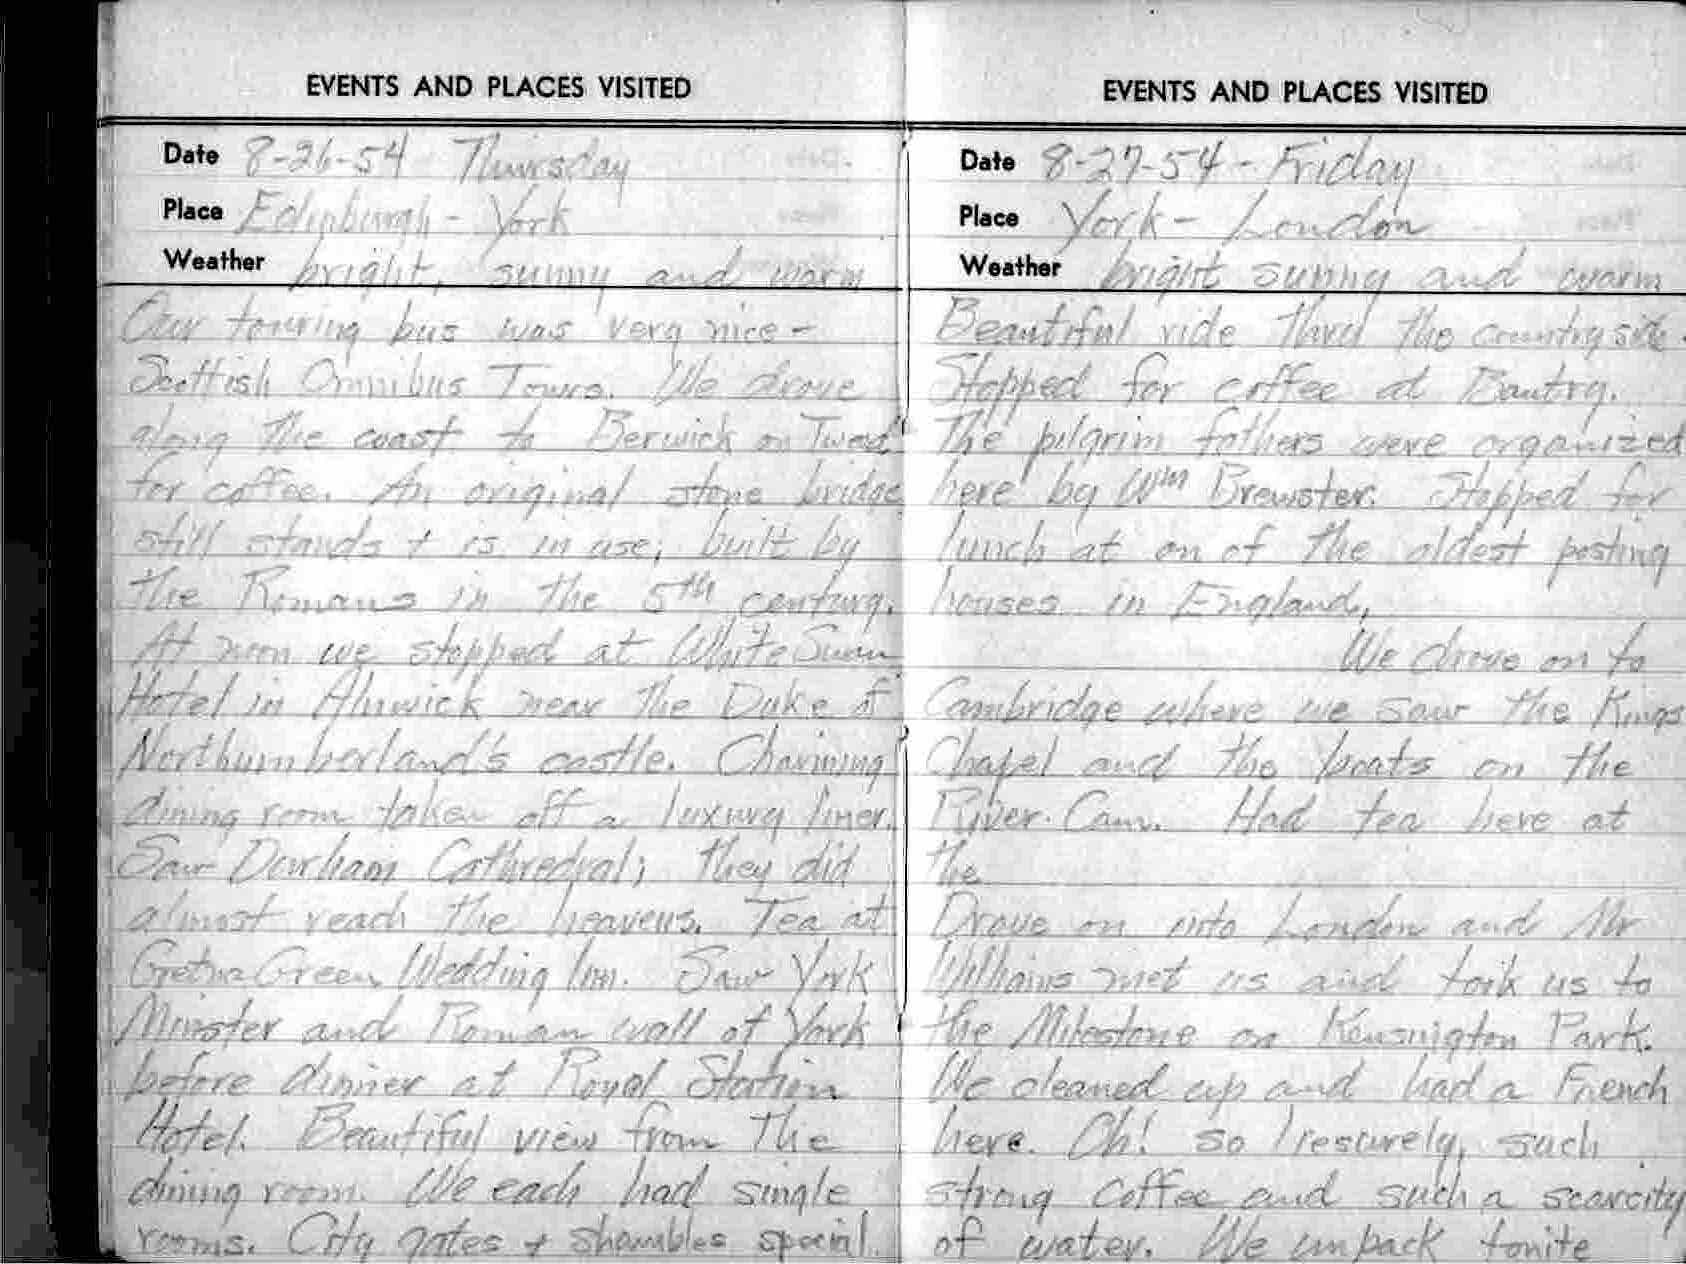 EVENTS AND PLACES VISITED
Date 8-26-54 Thursday
Place Edinburgh - York
Weather bright, sunny and warm
Our touring bus was very nice -
Scottish Omnibus Tours. We drove
along the coast to Berwick on Tweed
for coffee. An original stone bridge
still stands + is in use; built by
the Romans in the 5th century.
At noon we stopped at White Swan
Hotel in Alnwick near the Duke of
Northumberland's castle. Charming
dining room taken off a luxury liner.
Saw Durham Cathredral; they did
almost reach the heavens. Tea at
Gretna Green Wedding Inn. Saw York
Minster and Roman wall of York
before dinner at Royal Station
Hotel. Beautiful view from the
dining room. We each had single
rooms. City gates + shambles special.
EVENTS AND PLACES VISITED
Date 8-27-54 - Friday
Place York - London
Weather bright sunny and warm
Beautiful ride thru the countryside.
Stopped for coffee at Bautry.
The pilgrim fathers were organized
here by Wm Brewster. Stopped for
lunch at on of the oldest posting
houses in England.
We drove on to
Cambridge where we saw the Kings
Chapel and the boats on the
River Cam. Had tea here at
the
Drove on into London and Mr
Williams met us and took us to
the Milestone on Kensnigton Park.
We cleaned up and had a French
here. Oh! so liesurely, such
strong coffee and such a scarcity
of water. We unpack tonite